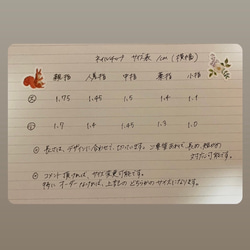 ネイルチップ サイズ表 /cm (横幅)
親指 人差指 中指 薬指 小指
大 1.75 1.45 1.5 1.4 1.1
小 1.7 1.4 1.45 1.3 1.0
長さは、デザインに合わせて、切っています。ご要望あれば、長め、短かめ
対応可能です。
コメント頂ければ、サイズ変更可能です。
特に オーダーなければ、上記の どちらかの サイズになります。